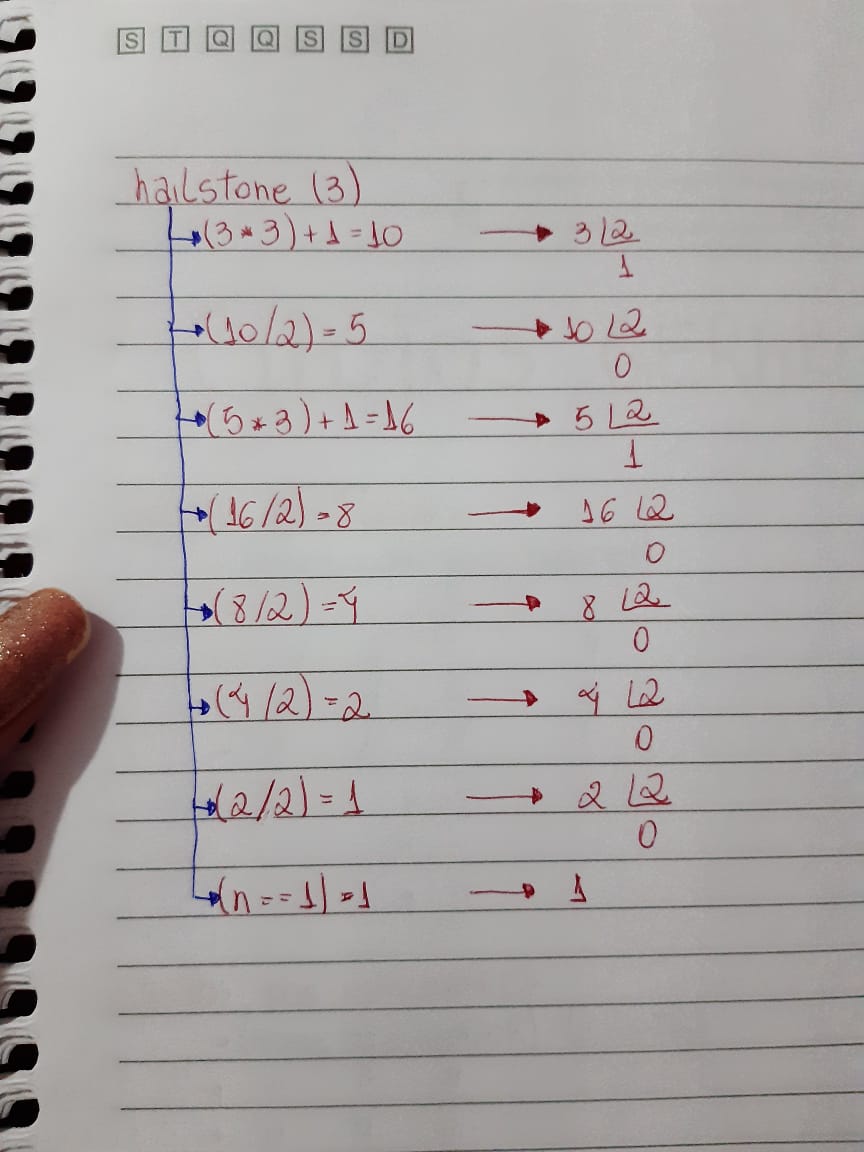 S T Q Q S S D
hailstone (3)
(3*3)+1=10 3 2
1
(10/2)=5 10 2
0
(5*3)+1=16 5 2
1
(16/2)=8 16 2
0
(8/2)=4 8 2
0
(4/2)=2 4 2
0
(2/2)=1 2 2
0
(n==1)=1 1